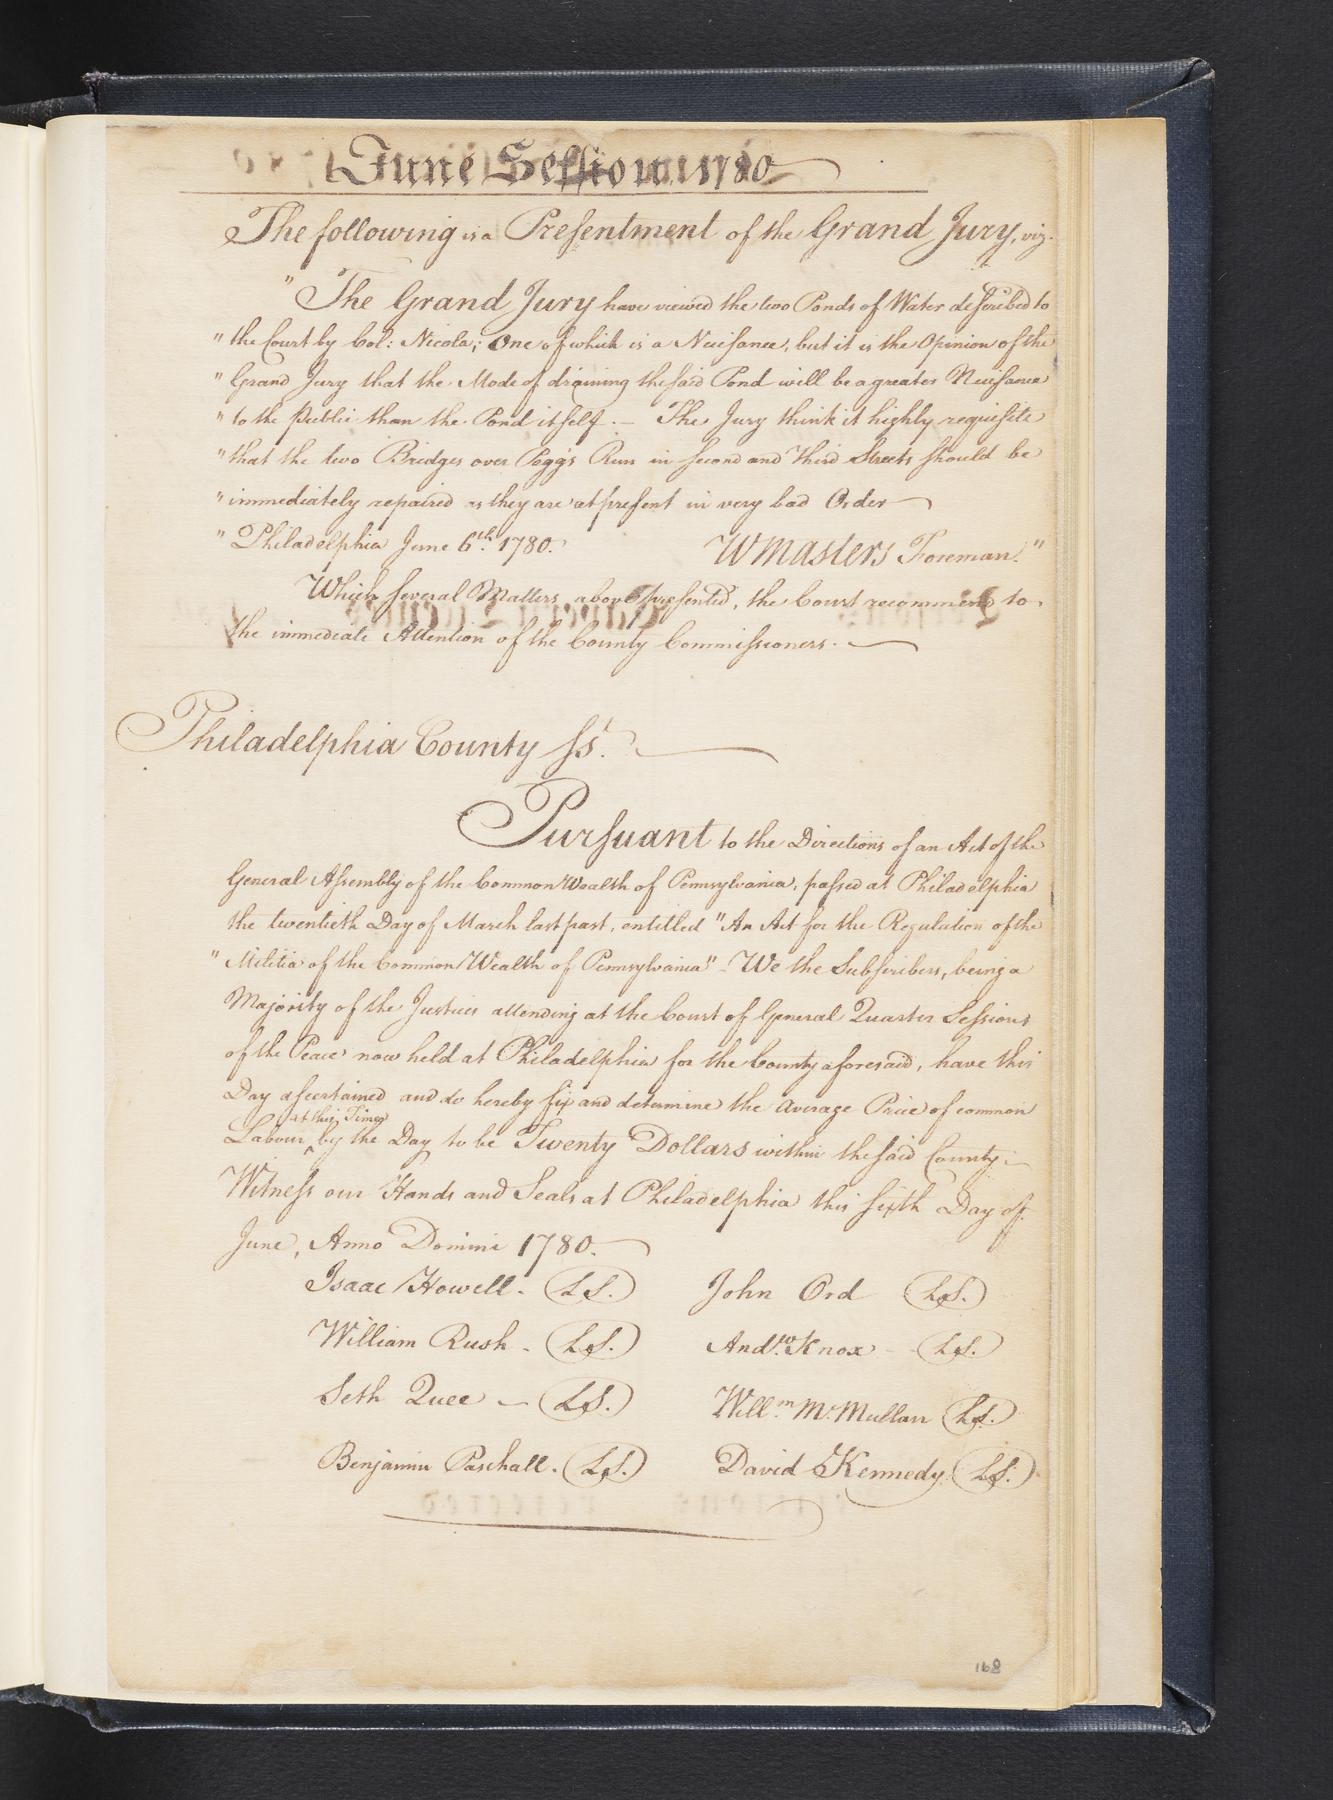 June Session 1780
The following is a Presentment of the Grand Jury, viz.
" The Grand Jury have viewed the two Ponds of Water described to
" the Court by Col: Nicola; One of which is a Nuisance, but it is the Opinion of the
" Grand Jury that the Mode of draining the said Pond will be a greater Nuisance
" to the Public than the Pond itself. — The Jury think it highly requisite
" that the two Bridges over Pegg's Run in Second and Third Streets should be
" immediately repaired as they are at present in very bad Order
" Philadelphia June 6th. 1780. W Masters Foreman."
Which several Matters above presented, the Court recommend to
the immediate Attention of the County Commissioners.
Philadelphia County Ss.
Pursuant to the Directions of an Act of the
General Assembly of the Common Wealth of Pennsylvania, passed at Philadelphia
the twentieth Day of March last past, entitled "An Act for the Regulation of the
" Militia of the Common Wealth of Pennsylvania" - We the Subscribers, being a
Majority of the Justices attending at the Court of General Quarter Sessions
of the Peace now held at Philadelphia for the County aforesaid, have this
Day ascertained and do hereby fix and determine the average Price of common
at this Time
Labour ^ by the Day to be Twenty Dollars within the said County —
Witness our Hands and Seals at Philadelphia this sixth Day of
June, Anno Domini 1780.
Isaac Howell - L.S. John Ord L.S.
William Rush - L.S. Andw. Knox - - L.S.
Seth Quee — L.S. Willm. McMullan L.S.
Benjamin Paschall. L.S. David Kennedy L.S.
168